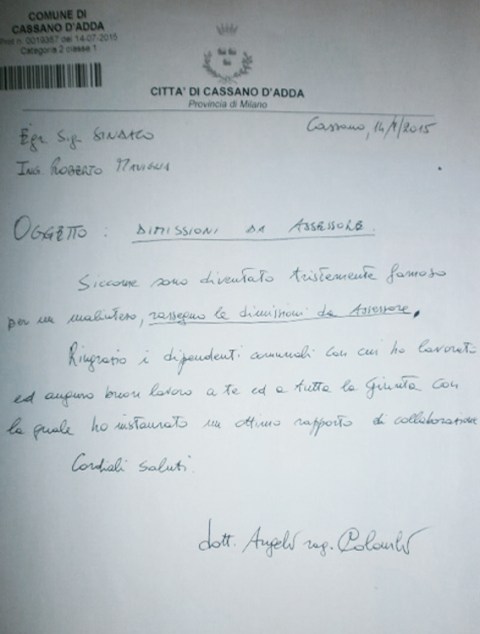 COMUNE DI
CASSANO D'ADDA
Prot n. 0019387 del 14-07-2015
Categoria 2 classe 1
CITTA' DI CASSANO D'ADDA
Provincia di Milano
Cassano, 14/7/2015
Egr. Sig. SINDACO
ING. ROBERTO MAVIGLIA
OGGETTO: DIMISSIONI DA ASSESSORE.
Siccome sono diventato tristemente famoso
per un malinteso, rassegno le dimissioni da Assessore.
Ringrazio i dipendenti comunali con cui ho lavorato
ed auguro buon lavoro a te ed a tutta la Giunta con
la quale ho instaurato un ottimo rapporto di collaborazione
Cordiali saluti.
dott. Angelo rag. Colombo